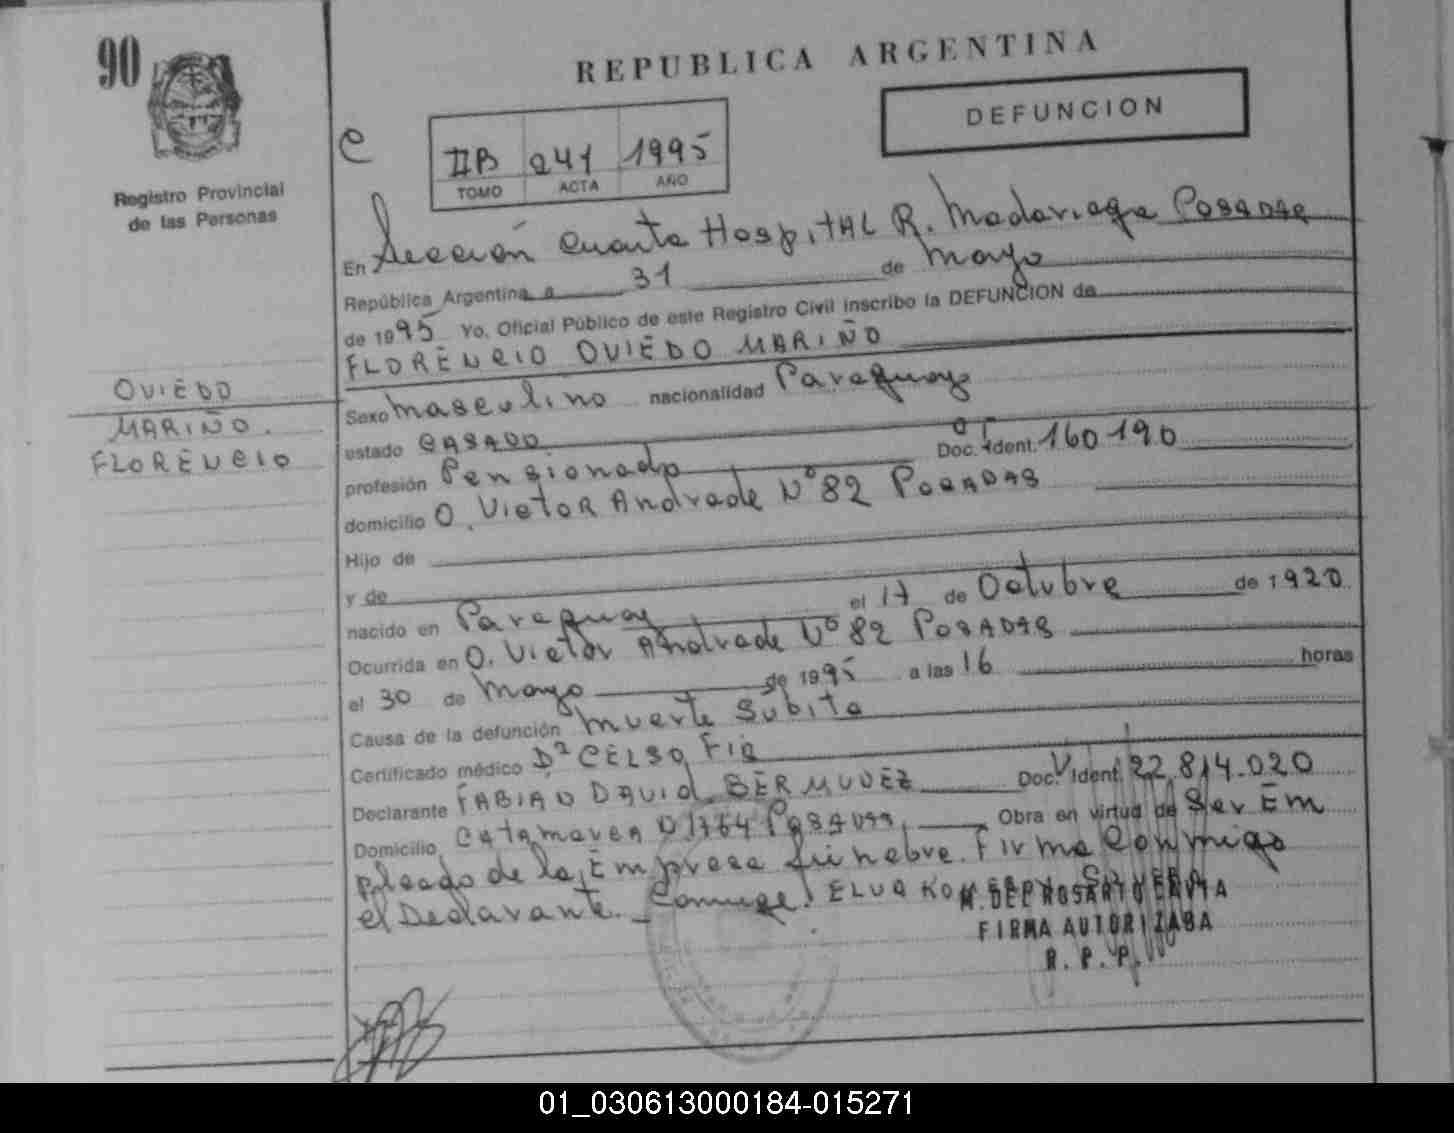 90
Registro Provincial
de las Personas
REPUBLICA ARGENTINA
DEFUNCION
C
IIB 241 1995
TOMO ACTA AÑO
En Sección Cuarta Hospital R. Madariaga Posadas
República Argentina a 31 de Mayo
de 1995 Yo, Oficial Público de este Registro Civil inscribo la DEFUNCION de
FLORENCIO OVIEDO MARIÑO
OVIEDO
MARIÑO.
FLORENCIO
Sexo Masculino nacionalidad Paraguay
estado CASADO
profesión Pensionado Doc. Ident. 160190
domicilio O. Victor Andrade Nº 82 POSADAS
Hijo de
y de
nacido en Paraguay el 17 de Octubre de 1920
Ocurrida en O. Victor Andrade Nº 82 POSADAS
el 30 de Mayo de 1995 a las 16 horas
Causa de la defunción Muerte Súbita
Certificado médico Dº CELSO
Declarante FABIAN DAVID BERMUDEZ Doc. Ident. 22.814.020
Domicilio Catamarca Nº 1764 POSADAS. Obra en virtud de Ser Em
pleado de la Empresa fúnebre. Firma Conmigo
el Declarante. Conyuge: ELVA
M. DEL ROSARIO
FIRMA AUTORIZADA
R. P. P.
01_030613000184-015271